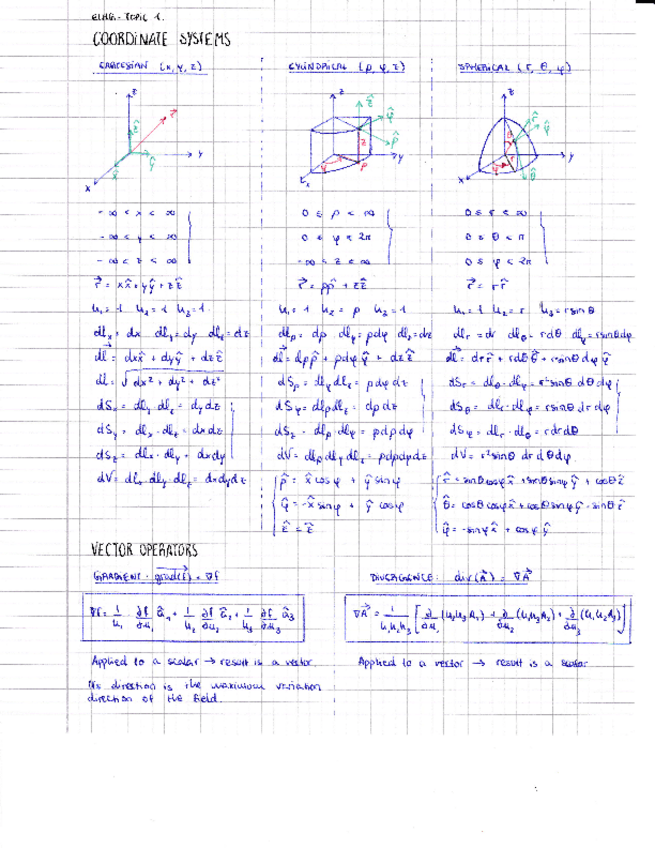 ELHG - TOPIC 1.
COORDINATE SYSTEMS
CARTESIAN (x, y, z)
z
r⃗
ẑ
ŷ
x̂
y
x
-∞ < x < ∞
-∞ < y < ∞
-∞ < z < ∞
r⃗ = xx̂ + yŷ + zẑ
h₁ = 1 h₂ = 1 h₃ = 1
dlₓ = dx dl_y = dy dl_z = dz
dl⃗ = dxx̂ + dyŷ + dzẑ
dl = √dx² + dy² + dz²
dSₓ = dl_y dl_z = dydz
dS_y = dlₓ · dl_z = dxdz
dS_z = dlₓ · dl_y = dxdy
dV = dlₓ dl_y dl_z = dxdydz
CYLINDRICAL (ρ, φ, z)
z
ẑ
φ̂
ρ̂
z
y
φ
ρ
x
0 ≤ ρ < ∞
0 ≤ φ < 2π
-∞ < z < ∞
r⃗ = ρρ̂ + zẑ
h₁ = 1 h₂ = ρ h₃ = 1
dl_ρ = dρ dl_φ = ρdφ dl_z = dz
dl⃗ = dρρ̂ + ρdφ φ̂ + dzẑ
dS_ρ = dl_φ dl_z = ρdφdz
dS_φ = dl_ρ dl_z = dρdz
dS_z = dl_ρ dl_φ = ρdρdφ
dV = dl_ρ dl_φ dl_z = ρdρdφdz
ρ̂ = x̂ cosφ + ŷ sinφ
φ̂ = -x̂ sinφ + ŷ cosφ
ẑ = ẑ
SPHERICAL (r, θ, φ)
z
r̂
φ̂
θ
r
y
φ
x
θ̂
0 ≤ r < ∞
0 ≤ θ < π
0 ≤ φ < 2π
r⃗ = rr̂
h₁ = 1 h₂ = r h₃ = rsinθ
dl_r = dr dl_θ = rdθ dl_φ = rsinθdφ
dl⃗ = drr̂ + rdθ θ̂ + rsinθ dφ φ̂
dS_r = dl_θ · dl_φ = r²sinθ dθ dφ
dS_θ = dl_r · dl_φ = rsinθ dr dφ
dS_φ = dl_r · dl_θ = rdrdθ
dV = r²sinθ dr dθ dφ
r̂ = sinθcosφ x̂ + sinθsinφ ŷ + cosθ ẑ
θ̂ = cosθ cosφ x̂ + cosθsinφ ŷ - sinθ ẑ
φ̂ = -sinφ x̂ + cosφ ŷ
VECTOR OPERATORS
GRADIENT: grad(f) = ∇f
∇f = 1/h₁ · ∂f/∂u₁ â₁ + 1/h₂ ∂f/∂u₂ â₂ + 1/h₃ ∂f/∂u₃ â₃
Applied to a scalar → result is a vector
Its direction is the maximum variation
direction of the field.
DIVERGENCE: div(A⃗) = ∇A⃗
∇A⃗ = 1/h₁h₂h₃ [∂/∂u₁ (h₂h₃A₁) + ∂/∂u₂ (h₁h₃A₂) + ∂/∂u₃ (h₁h₂A₃)]
Applied to a vector → result is a scalar